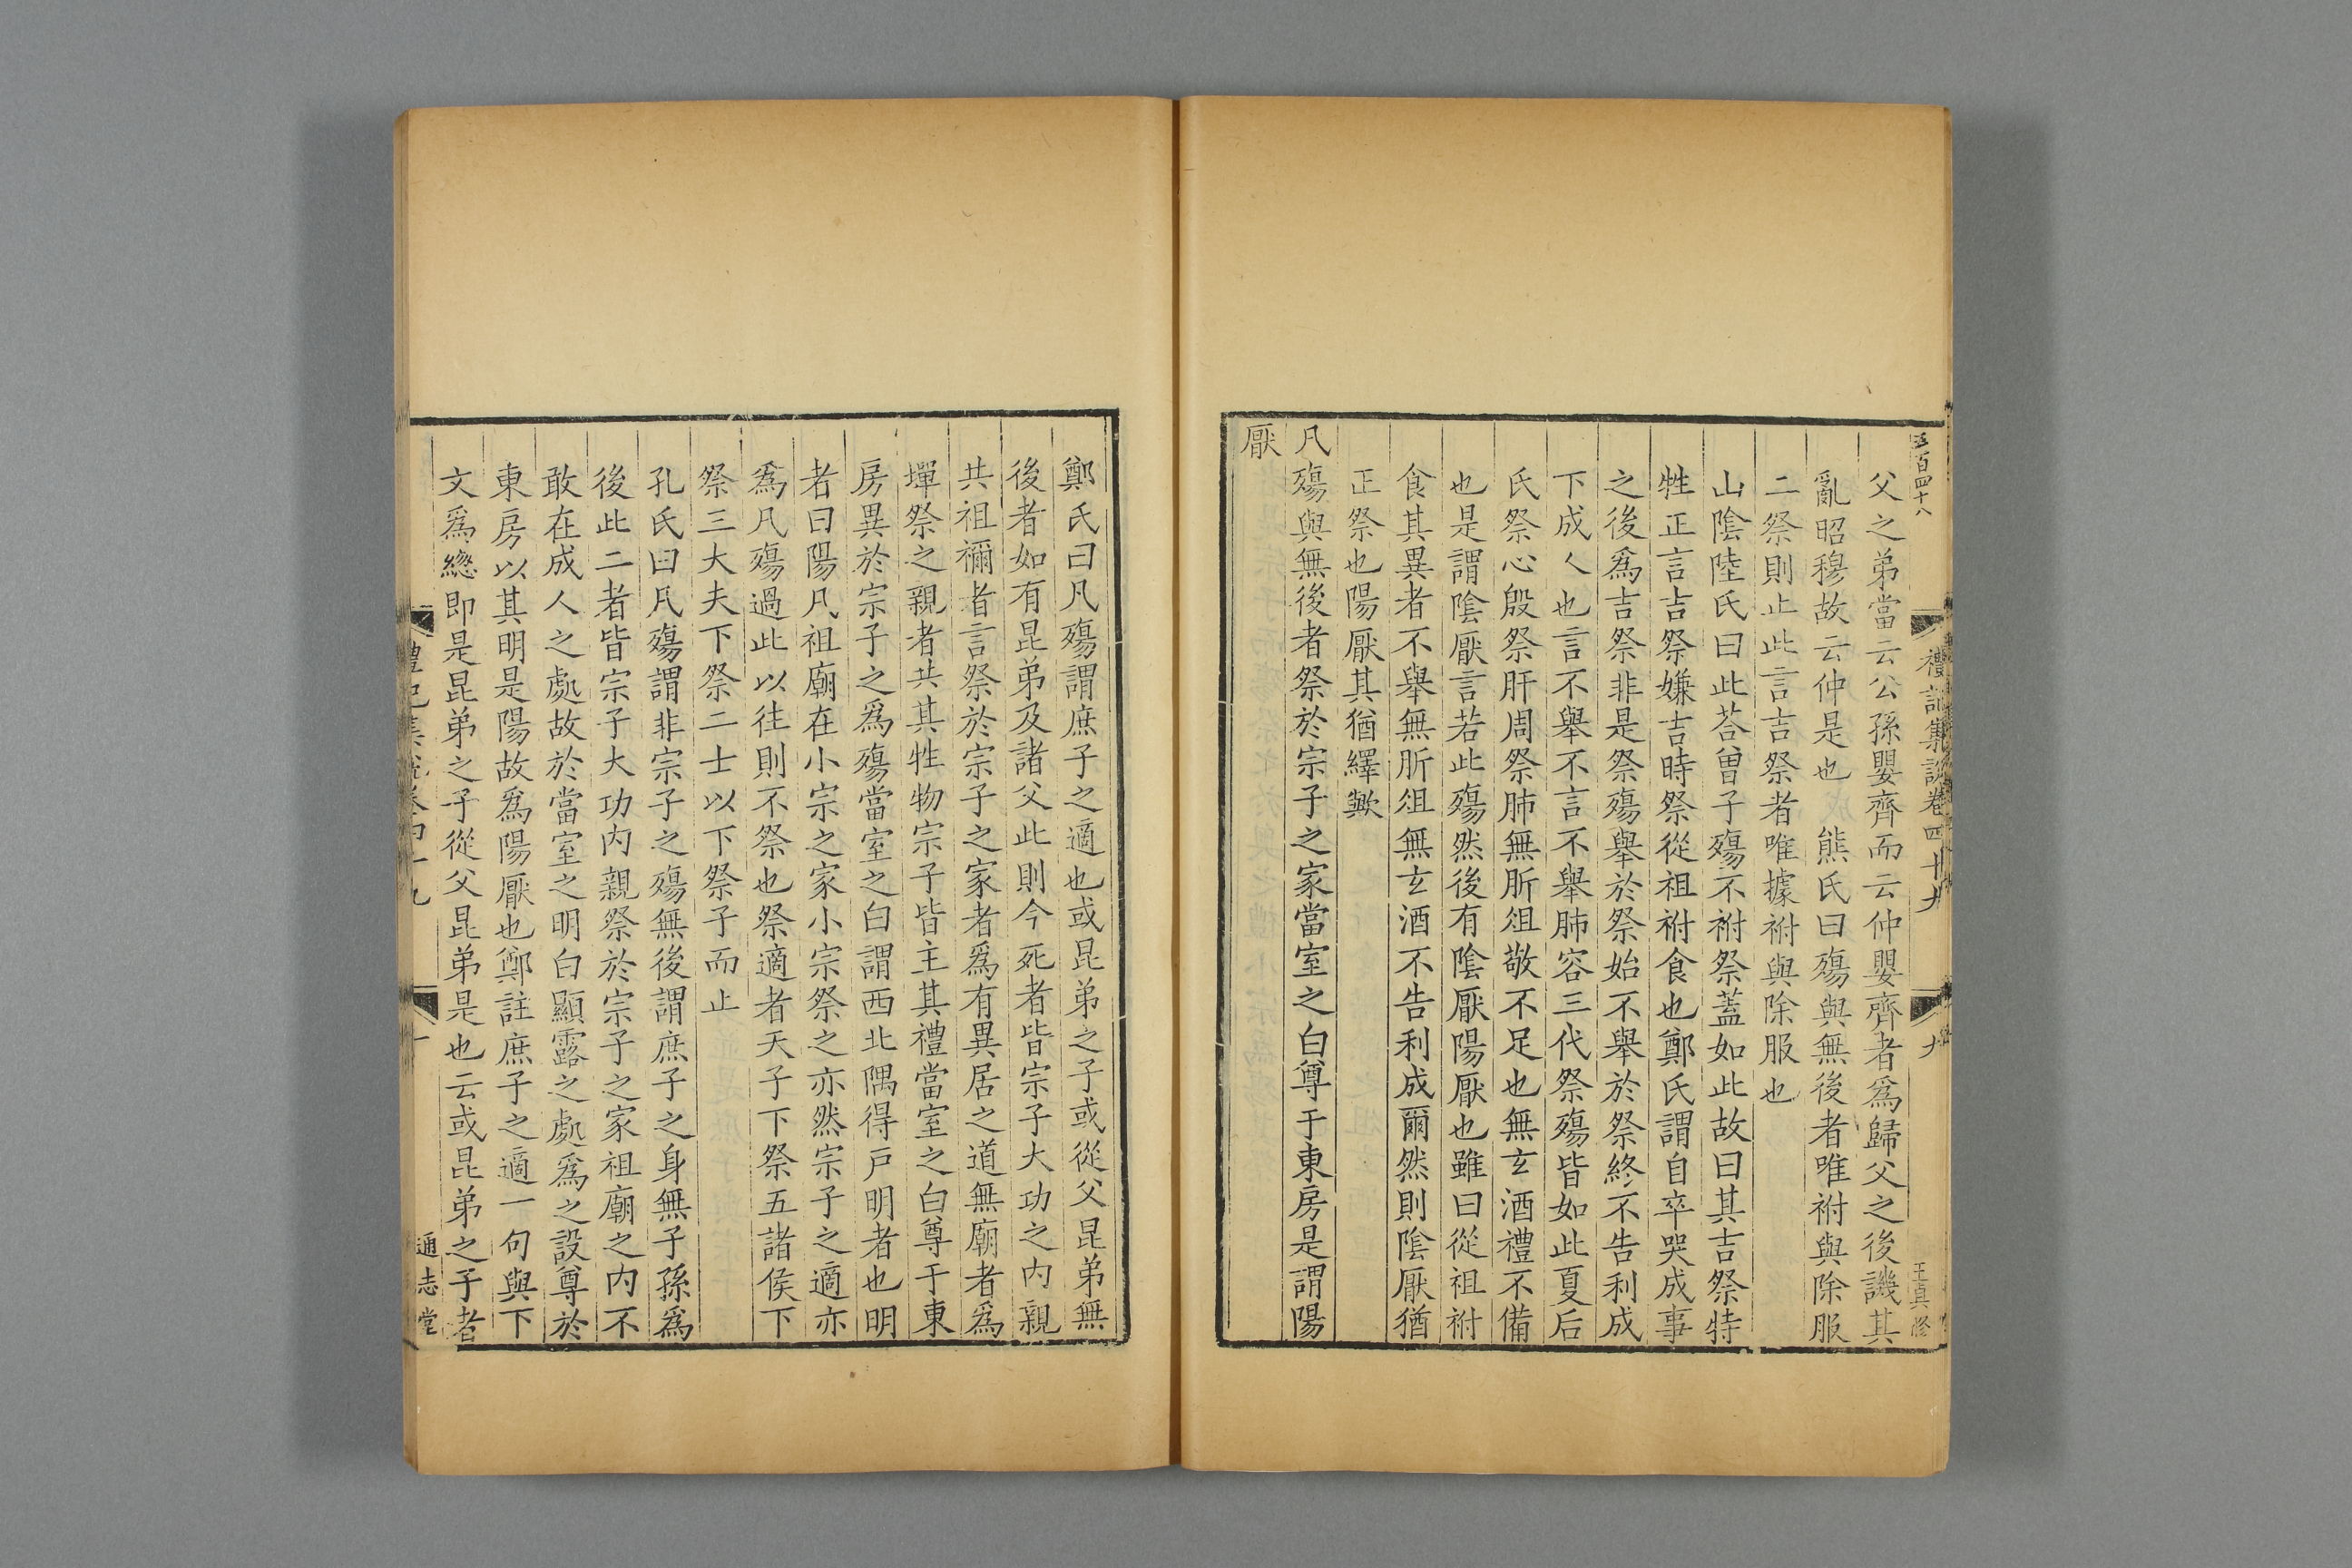 五百四十八
禮記集說卷四十九
九
王真修
父之弟當云公孫嬰齊而云仲嬰齊者爲歸父之後譏其
亂昭穆故云仲是也 熊氏曰殤與無後者唯祔與除服
二祭則止此言吉祭者唯據祔與除服也
山陰陸氏曰此荅曽子殤不祔祭蓋如此故曰其吉祭特
牲正言吉祭嫌吉時祭從祖祔食也鄭氏謂自卒哭成事
之後爲吉祭非是祭殤舉於祭始不舉於祭終不告利成
下成人也言不舉不言不舉肺容三代祭殤皆如此夏后
氏祭心殷祭肝周祭肺無肵俎敬不足也無玄酒禮不備
也是謂陰厭言若此殤然後有陰厭陽厭也雖曰從祖祔
食其異者不舉無肵俎無玄酒不告利成爾然則陰厭猶
正祭也陽厭其猶繹歟
凡殤與無後者祭於宗子之家當室之白尊于東房是謂陽
厭
鄭氏曰凡殤謂庶子之適也或昆弟之子或從父昆弟無
後者如有昆弟及諸父此則今死者皆宗子大功之内親
共祖禰者言祭於宗子之家者爲有異居之道無廟者爲
墠祭之親者共其牲物宗子皆主其禮當室之白尊于東
房異於宗子之爲殤當室之白謂西北隅得戸明者也明
者曰陽凡祖廟在小宗之家小宗祭之亦然宗子之適亦
爲凡殤過此以往則不祭也祭適者天子下祭五諸侯下
祭三大夫下祭二士以下祭子而止
孔氏曰凡殤謂非宗子之殤無後謂庶子之身無子孫爲
後此二者皆宗子大功内親祭於宗子之家祖廟之内不
敢在成人之處故於當室之明白顯露之處爲之設尊於
東房以其明是陽故爲陽厭也鄭註庶子之適一句與下
文爲總即是昆弟之子從父昆弟是也云或昆弟之子者
禮記集說卷四十九
通志堂